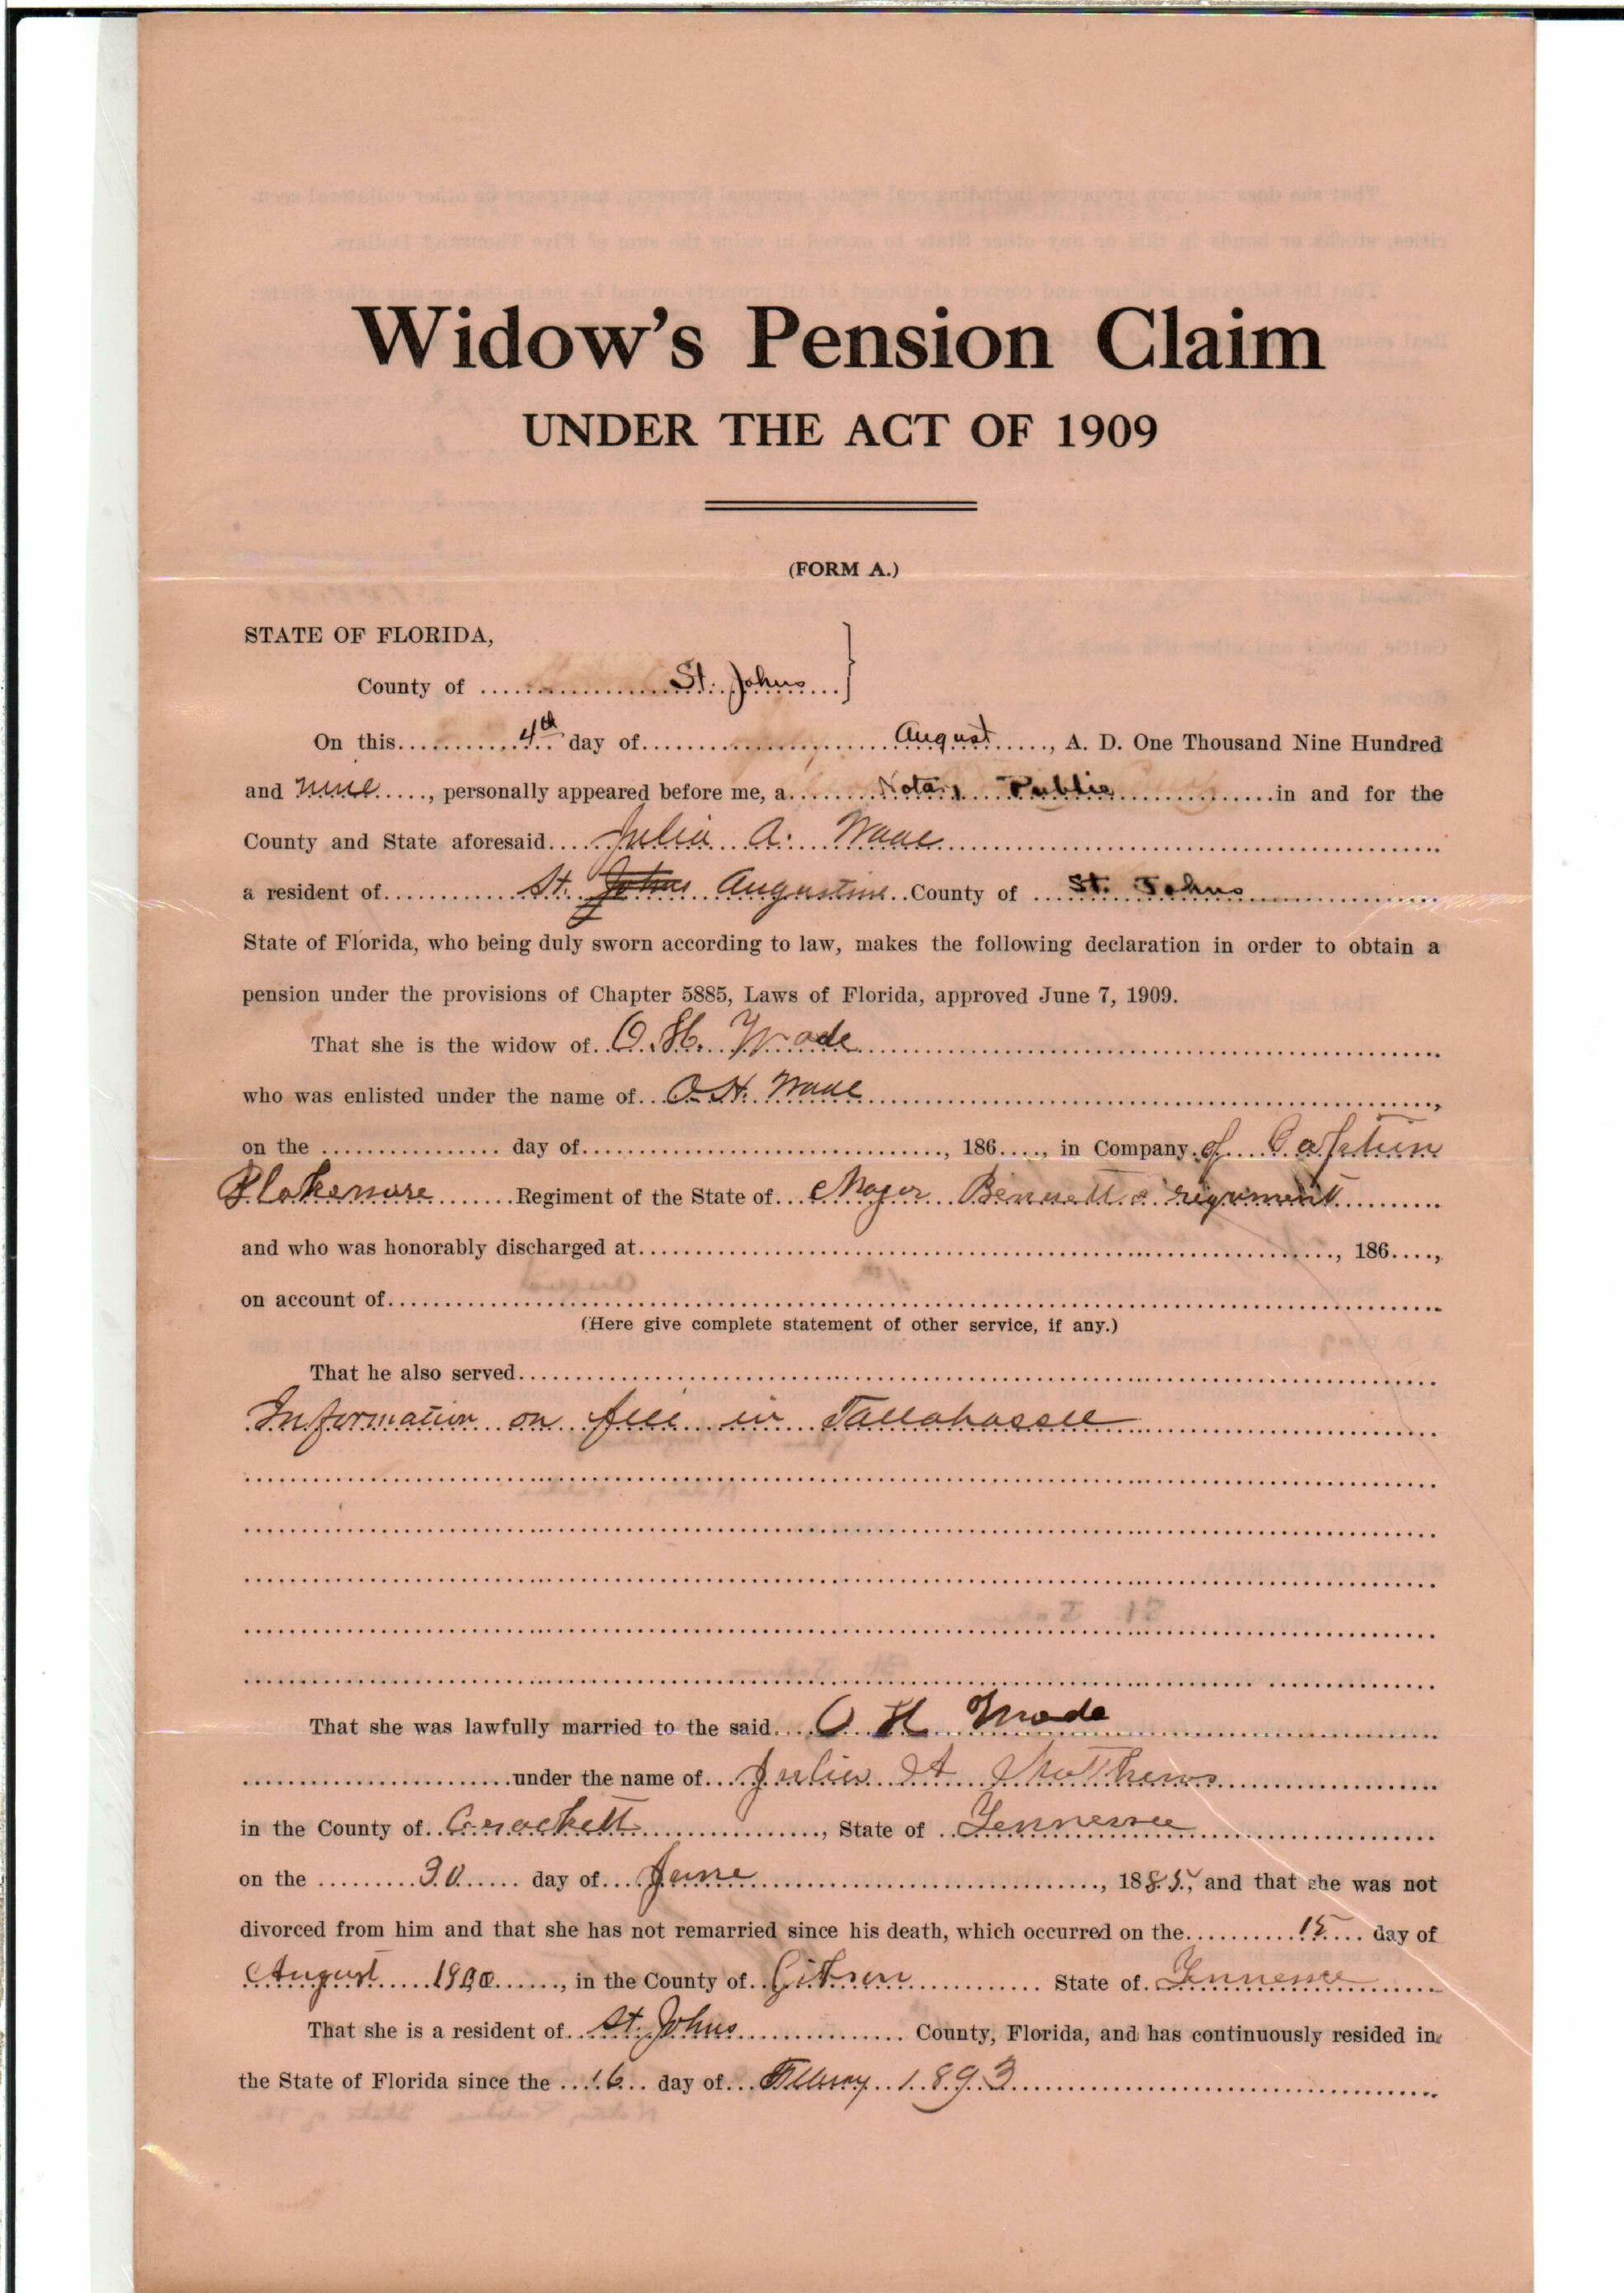 Widow's Pension Claim
UNDER THE ACT OF 1909
(FORM A.)
STATE OF FLORIDA,
County of St. Johns
On this 4th day of August, A. D. One Thousand Nine Hundred
and nine, personally appeared before me, a Notary Public in and for the
County and State aforesaid Julia A. Wade
a resident of St. Johns Augustine County of St. Johns
State of Florida, who being duly sworn according to law, makes the following declaration in order to obtain a
pension under the provisions of Chapter 5885, Laws of Florida, approved June 7, 1909.
That she is the widow of O. H. Wade
who was enlisted under the name of O. H. Wade,
on the day of, 186, in Company of Captin
Blakemore Regiment of the State of Major Bennett's regiment
and who was honorably discharged at, 186,
on account of
(Here give complete statement of other service, if any.)
That he also served
Information on file in Tallahassee
That she was lawfully married to the said O H Wade
under the name of Julia A Mathews
in the County of Crockett, State of Tennessee
on the 30 day of June, 1885, and that she was not
divorced from him and that she has not remarried since his death, which occurred on the 15 day of
August 1900, in the County of Gibson State of Tennessee
That she is a resident of St. Johns County, Florida, and has continuously resided in
the State of Florida since the 16 day of 1893